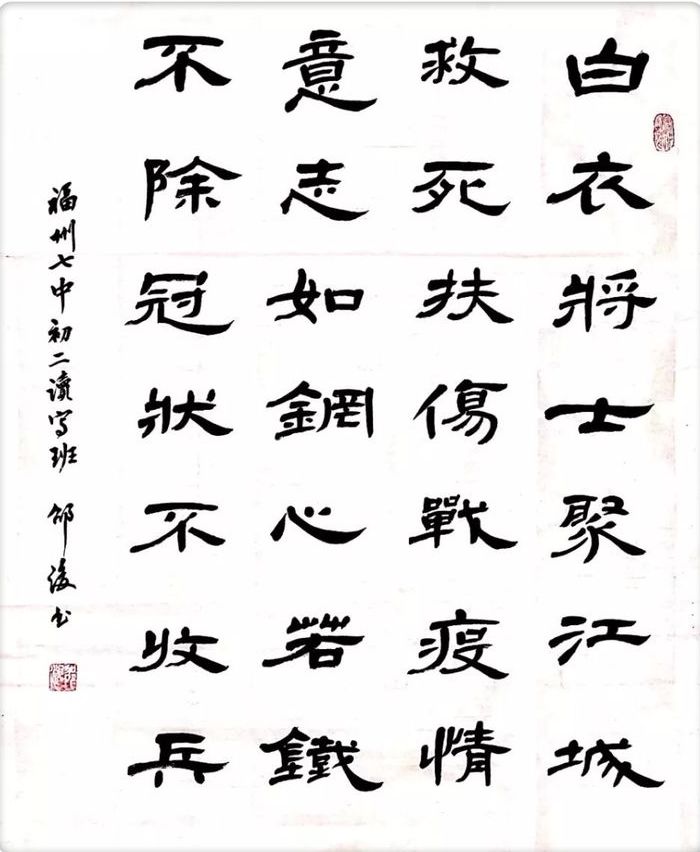 白衣將士聚江城
救死扶傷戰疫情
意志如鋼心若鐵
不除冠狀不收兵
福州七中初二讀寫班 邱後书